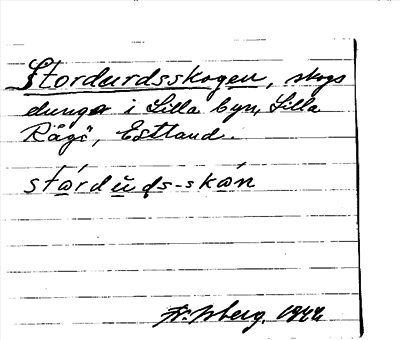 Stordurdsskogen, skogs
dunge i Lilla byn, Lilla
Rågö, Estland.
stórdùds-skån
berg. 1944